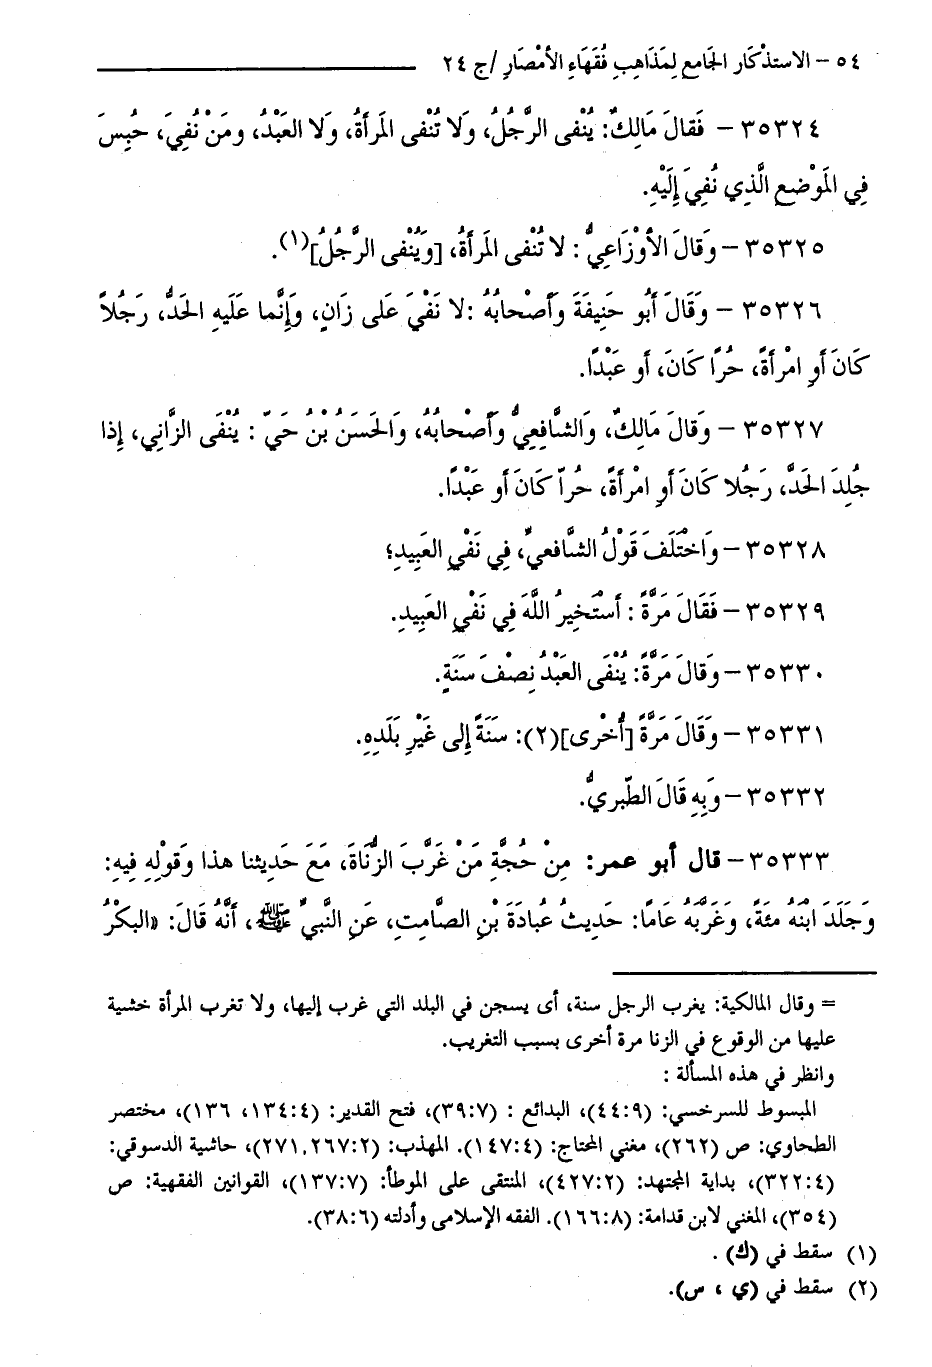 ٥٤ – الاستذْكار الجَامع لِمَذاهِبِ فُقَهَاءِ الأمْصَارِ / ج ٢٤
٣٥٣٢٤ – فَقالَ مَالِكٌ: يُنْفى الرَّجُلُ، وَلا تُنْفى المَرأَةُ، وَلا العَبْدُ، ومَنْ نُفِيَ، حُبِسَ
فِي المَوْضعِ الَّذِي نُفِيَ إِلَيْهِ.
٣٥٣٢٥ – وَقالَ الأوْزَاعِيُّ : لا تُنْفى المَرأَةُ، [وَيُنْفى الرَّجُلُ](١).
٣٥٣٢٦ – وَقَالَ أَبُو حَنِيفَةَ وَأَصْحابُهُ :لا نَفْيَ عَلى زَانٍ، وَإِنَّما عَلَيهِ الحَدُّ، رَجُلاً
كَانَ أَوِ امْرأَةً، حُرًا كَانَ، أَو عَبْدًا.
٣٥٣٢٧ – وَقَالَ مَالِكٌ، وَالشَّافِعِيُّ وَأَصْحابُهُ، وَالحَسَنُ بْنُ حَيّ : يُنْفَى الزَّانِي، إِذا
جُلِدَ الحَدَّ، رَجُلا كَانَ أَوِ امْرأَةً، حُرًا كَانَ أَو عَبْدًا.
٣٥٣٢٨ – وَاخْتَلَفَ قَوْلُ الشَّافعيِّ، فِي نَفْيِ العَبِيدِ؛
٣٥٣٢٩ – فَقَالَ مَرَّةً : أَسْتَخِيرُ اللَّهَ فِي نَفْيِ العَبِيدِ.
٣٥٣٣٠ – وَقالَ مَرَّةً: يُنْفَى العَبْدُ نِصْفَ سَنَةٍ.
٣٥٣٣١ – وَقَالَ مَرَّةً [أُخْرى](٢): سَنَةً إِلى غَيْرِ بَلَدِهِ.
٣٥٣٣٢ – وَبِهِ قَالَ الطَّبريُّ.
٣٥٣٣٣ – قال أبو عمر: مِنْ حُجَّةِ مَنْ غَرَّبَ الزُّنَاةَ، مَعَ حَدِيثنا هذا وَقَوْلِهِ فِيهِ:
وَجَلَدَ ابْنَهُ مئَةً، وَغَرَّبَهُ عَامًا: حَدِيثُ عُبادَةَ بْنِ الصَّامِتِ، عَنِ النَّبيِّ ﷺ، أَنَّهُ قَالَ: «البكْرُ
= وقال المالكية: يغرب الرجل سنة، أى يسجن في البلد التي غرب إليها، ولا تغرب المرأة خشية
عليها من الوقوع في الزنا مرة أخرى بسبب التغريب.
وانظر في هذه المسألة :
المبسوط للسرخسي: (٤٤:٩)، البدائع : (٣٩:٧)، فتح القدير: (١٣٤:٤، ١٣٦)، مختصر
الطحاوي: ص (٢٦٢)، مغني المحتاج: (١٤٧:٤). المهذب: (٢٧١,٢٦٧:٢)، حاشية الدسوقي:
(٣٢٢:٤)، بداية المجتهد: (٤٢٧:٢)، المنتقى على الموطأ: (١٣٧:٧)، القوانين الفقهية: ص
(٣٥٤)، المغني لابن قدامة: (١٦٦:٨). الفقه الإسلامى وأدلته (٣٨:٦).
(١) سقط في (ك) .
(٢) سقط في (ي ، س).